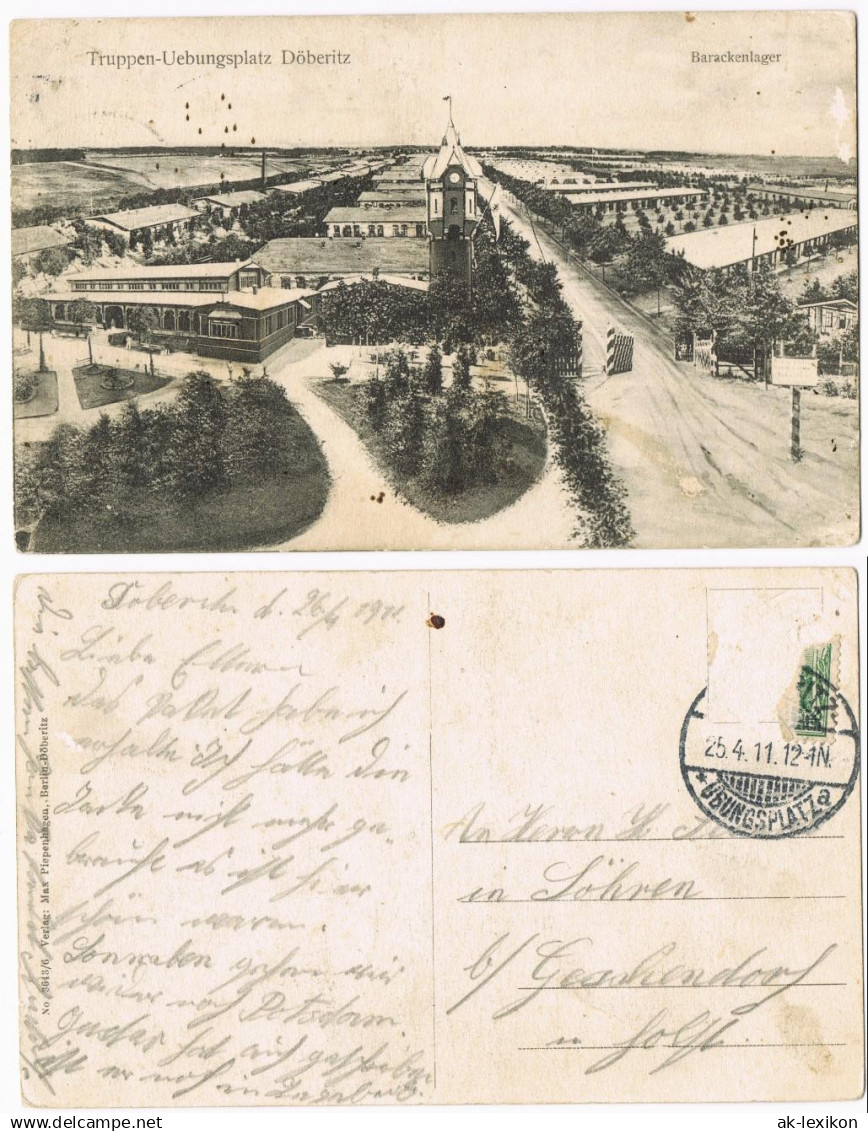 Truppen-Uebungsplatz Döberitz
Barackenlager
Döberitz d. 26/4 1911
Liebe Eltern
das Paket habe ich
erhalte Ich hätte die
Jacke nicht mehr ge-
braucht es ist hier
schön
Sonnaben gehen wir
wider nach Potsdam.
hat auch geschrieben
ist er noch in
No 3643/6 Verlag: Max Piepenhagen, Berlin-Döberitz
25.4.11.12-1N.
*ÜBUNGSPLATZ a
An Herrn H.
in Söhren
b/ Geschendorf
in Holst.
ak-lexikon